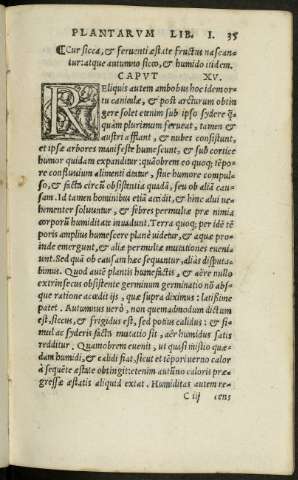 PLANTARVM LIB. I. 35
¶Cur sicca, & feruenti æstate fructus nascan-
tur: atque autumno sicco, & humido itidem.
CAPVT XV.
REliquis autem ambobus hoc idem or-
tu caniculæ, & post arcturum obtin
gere solet etenim sub ipso sydere q̃
quàm plurimum ferueat, tamen &
austri afflant, & nubes consistunt,
et ipsæ arbores manifestè humescunt, & sub cortice
humor quidam expanditur: quãobrem eo quoq; tẽpo-
re confluuium alimenti datur, siue humore compul-
so, & facta circũ obsistentia quadã, seu ob aliã cau-
sam. Id tamen hominibus etiã accidit, & hinc alui ue-
hementer soluuntur, & febres permultæ præ nimia
corporũ humiditate inuadunt. Terra quoq; per idẽ tẽ-
poris amplius humescere planè uidetur, et aquæ pro-
inde emergunt, & aliæ permultæ mutationes eueni-
unt. Sed quã ob causam hæc sequantur, aliàs disputa-
bimus. Quod autẽ plantis humefactis, & aëre nullo
extrinsecus obsistente germinum germinatio nõ abs-
que ratione accidit ijs, quæ supra diximus: latissimè
patet. Autumnus verò, non quemadmodum dictum
est, siccus, & frigidus est, sed potius calidus: & si-
mul ac syderis facta mutatio sit, aër humidus satis
redditur. Quamobrem euenit, ut quasi mistio quæ-
dam humidi, & calidi fiat, sicut et tẽpori verno calor
à sequẽte æstate obtingit: etenim autũno caloris præ-
gressæ æstatis aliquid extat. Humiditas autem re-
C iij cens